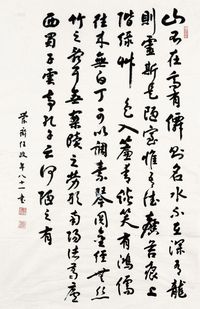 山不在高有僊則名水不在深有龍
則靈斯是陋室惟吾德馨苔痕上
階綠草色入簾青談笑有鴻儒
往來無白丁可以調素琴閱金經無絲
竹之亂耳無案牘之勞形南陽諸葛廬
西蜀子雲亭孔子云何陋之有
任政年八十一書